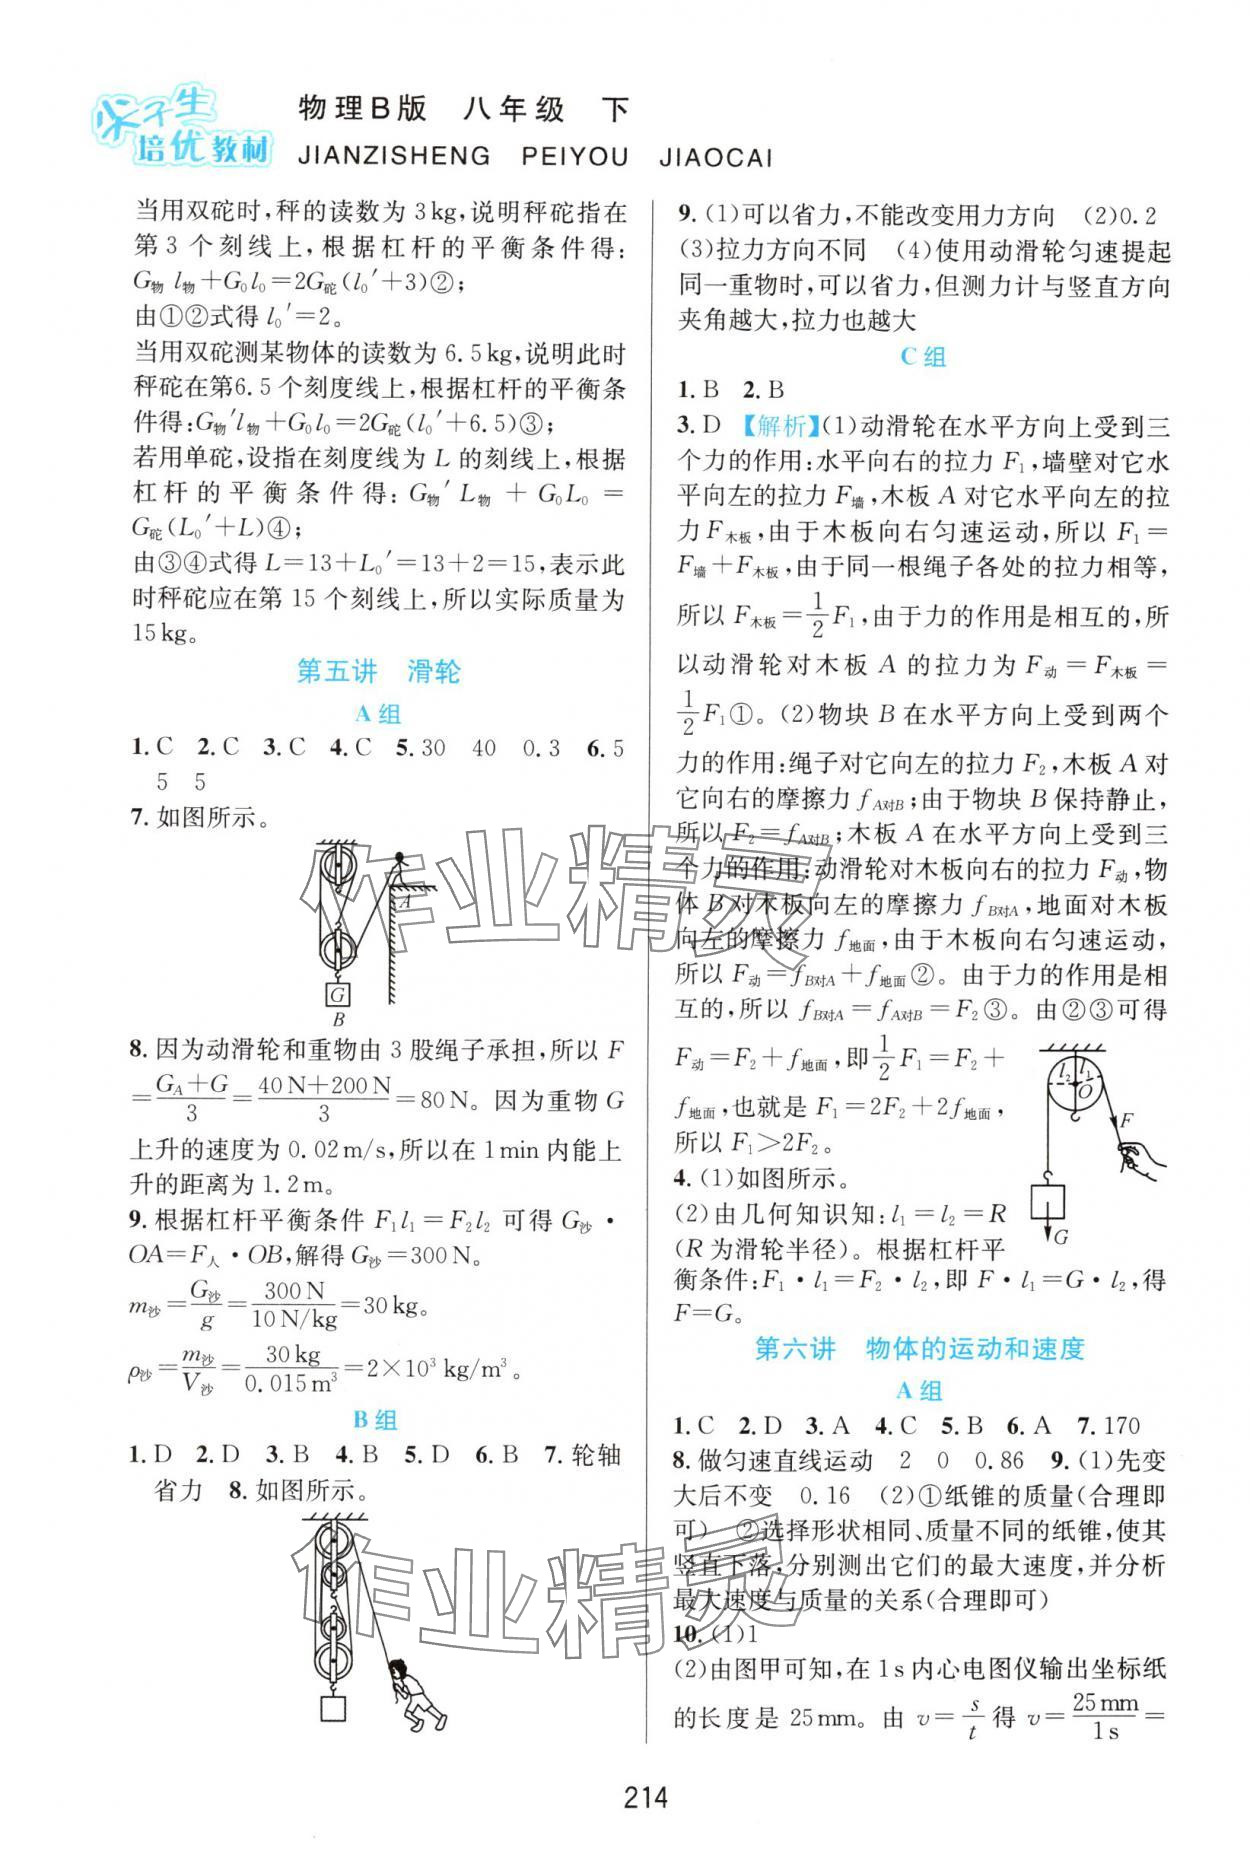 尖子生
培优教材
物理B版 八年级 下
JIANZISHENG PEIYOU JIAOCAI
当用双砣时,秤的读数为3kg,说明秤砣指在
第3个刻线上,根据杠杆的平衡条件得:
G物 l物+G₀l₀=2G砣(l₀′+3)②;
由①②式得 l₀′=2。
当用双砣测某物体的读数为6.5kg,说明此时
秤砣在第6.5个刻度线上,根据杠杆的平衡条
件得:G物′l物+G₀l₀=2G砣(l₀′+6.5)③;
若用单砣,设指在刻度线为L的刻线上,根据
杠杆的平衡条件得:G物′L物+G₀L₀=
G砣(L₀′+L)④;
由③④式得L=13+L₀′=13+2=15,表示此
时秤砣应在第15个刻线上,所以实际质量为
15kg。
第五讲 滑轮
A组
1.C 2.C 3.C 4.C 5.30 40 0.3 6.5
5 5
7.如图所示。
A
G
B
8.因为动滑轮和重物由3股绳子承担,所以F
=(G_A+G)/3=(40N+200N)/3=80N。因为重物G
上升的速度为0.02m/s,所以在1min内能上
升的距离为1.2m。
9.根据杠杆平衡条件F₁l₁=F₂l₂可得G沙·
OA=F人·OB,解得G沙=300N。
m沙=G沙/g=300N/(10N/kg)=30kg。
ρ沙=m沙/V沙=30kg/0.015m³=2×10³kg/m³。
B组
1.D 2.D 3.B 4.B 5.D 6.B 7.轮轴
省力 8.如图所示。
9.(1)可以省力,不能改变用力方向 (2)0.2
(3)拉力方向不同 (4)使用动滑轮匀速提起
同一重物时,可以省力,但测力计与竖直方向
夹角越大,拉力也越大
C组
1.B 2.B
3.D 【解析】(1)动滑轮在水平方向上受到三
个力的作用:水平向右的拉力F₁,墙壁对它水
平向左的拉力F墙,木板A对它水平向左的拉
力F木板,由于木板向右匀速运动,所以F₁=
F墙+F木板,由于同一根绳子各处的拉力相等,
所以F木板=1/2F₁,由于力的作用是相互的,所
以动滑轮对木板A的拉力为F动=F木板=
1/2F₁①。(2)物块B在水平方向上受到两个
力的作用:绳子对它向左的拉力F₂,木板A对
它向右的摩擦力f_A对B;由于物块B保持静止,
所以F₂=f_A对B;木板A在水平方向上受到三
个力的作用:动滑轮对木板向右的拉力F动,物
体B对木板向左的摩擦力f_B对A,地面对木板
向左的摩擦力f地面,由于木板向右匀速运动,
所以F动=f_B对A+f地面②。由于力的作用是相
互的,所以f_B对A=f_A对B=F₂③。由②③可得
F动=F₂+f地面,即1/2F₁=F₂+
f地面,也就是F₁=2F₂+2f地面,
所以F₁>2F₂。
l₂ l₁
O
F
G
4.(1)如图所示。
(2)由几何知识知:l₁=l₂=R
(R为滑轮半径)。根据杠杆平
衡条件:F₁·l₁=F₂·l₂,即F·l₁=G·l₂,得
F=G。
第六讲 物体的运动和速度
A组
1.C 2.D 3.A 4.C 5.B 6.A 7.170
8.做匀速直线运动 2 0 0.86 9.(1)先变
大后不变 0.16 (2)①纸锥的质量(合理即
可) ②选择形状相同、质量不同的纸锥,使其
竖直下落,分别测出它们的最大速度,并分析
最大速度与质量的关系(合理即可)
10.(1)1
(2)由图甲可知,在1s内心电图仪输出坐标纸
的长度是25mm。由v=s/t得v=25mm/1s=
214
作业精灵
作业精灵